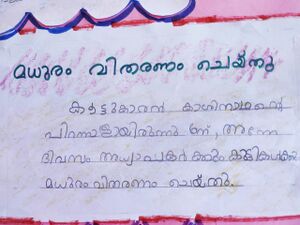 മധുരം വിതരണം ചെയ്തു
കൂട്ടുകാരൻ കാശിനാഥന്റെ
പിറന്നാളായിരുന്നു ണ്, അന്നേ
ദിവസം അധ്യാപകർക്കും കുട്ടികൾക്കും
മധുരവിതരണം ചെയ്തു.